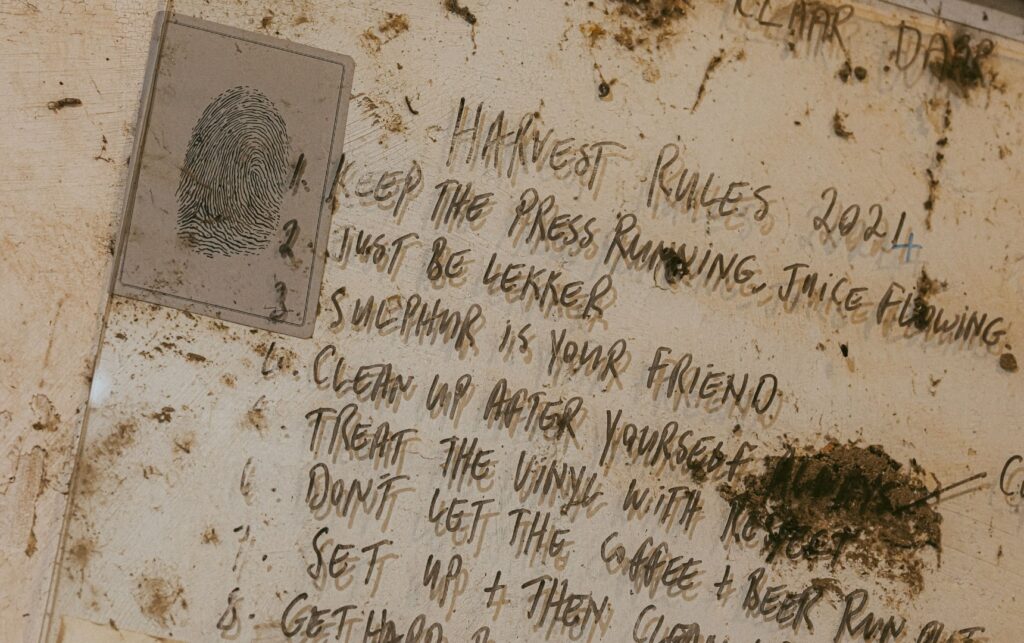 HARVEST RULES 2024
1. KEEP THE PRESS RUNNING, JUICE FLOWING.
2. JUST BE LEKKER
3 SULPHUR IS YOUR FRIEND
4. CLEAN UP AFTER YOURSELF
TREAT THE VINYL WITH RESPECT
DON'T LET THE COFFEE + BEER RUN OUT
SET UP + THEN CLEAN
8. GET HARD